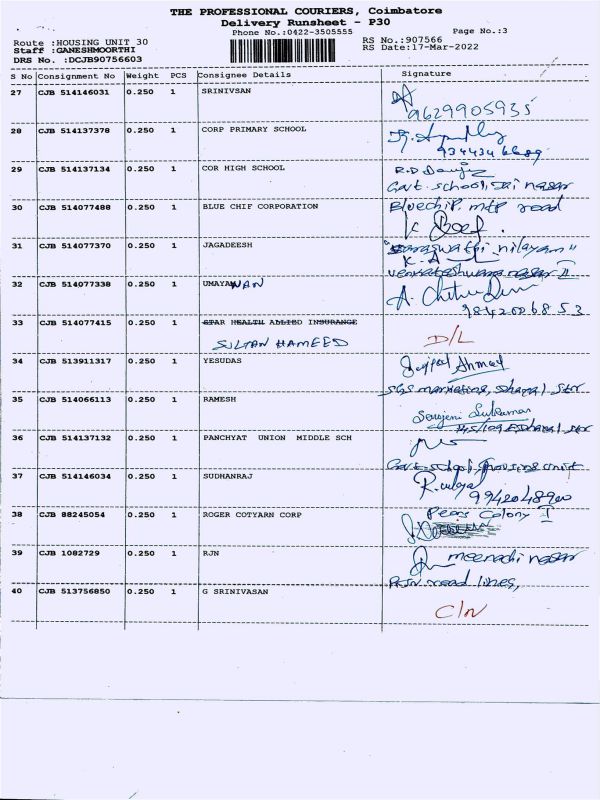 THE PROFESSIONAL COURIERS, Coimbatore
Delivery Runsheet - P30
Phone No.:0422-3505555
Page No.:3
Route :HOUSING UNIT 30
RS No.:907566
Staff :GANESHMOORTHI
RS Date:17-Mar-2022
DRS No. :DCJB90756603
S No Consignment No Weight PCS Consignee Details Signature
27 CJB 514146031 0.250 1 SRINIVSAN
9629905935
28 CJB 514137378 0.250 1 CORP PRIMARY SCHOOL
29 CJB 514137134 0.250 1 COR HIGH SCHOOL
Govt. school, Sai nagar
30 CJB 514077488 0.250 1 BLUE CHIF CORPORATION Bluechip. mtp road
31 CJB 514077370 0.250 1 JAGADEESH "Saraswathi nilayam"
venkateshwara nagar II
32 CJB 514077338 0.250 1 UMAYAWAN
9842006853
33 CJB 514077415 0.250 1 STAR HEALTH ALLIED INSURANCE
SULTAN HAMEED D/L
34 CJB 513911317 0.250 1 YESUDAS Ahmed
SGS marketing,
35 CJB 514066113 0.250 1 RAMESH Sarojeni Sukumar
36 CJB 514137132 0.250 1 PANCHYAT UNION MIDDLE SCH
Govt. school, Housing unit
37 CJB 514146034 0.250 1 SUDHANRAJ
9942048900
38 CJB 88245054 0.250 1 ROGER COTYARN CORP Colony I
39 CJB 1082729 0.250 1 RJN meenachi nagar
road lines,
40 CJB 513756850 0.250 1 G SRINIVASAN
C/N